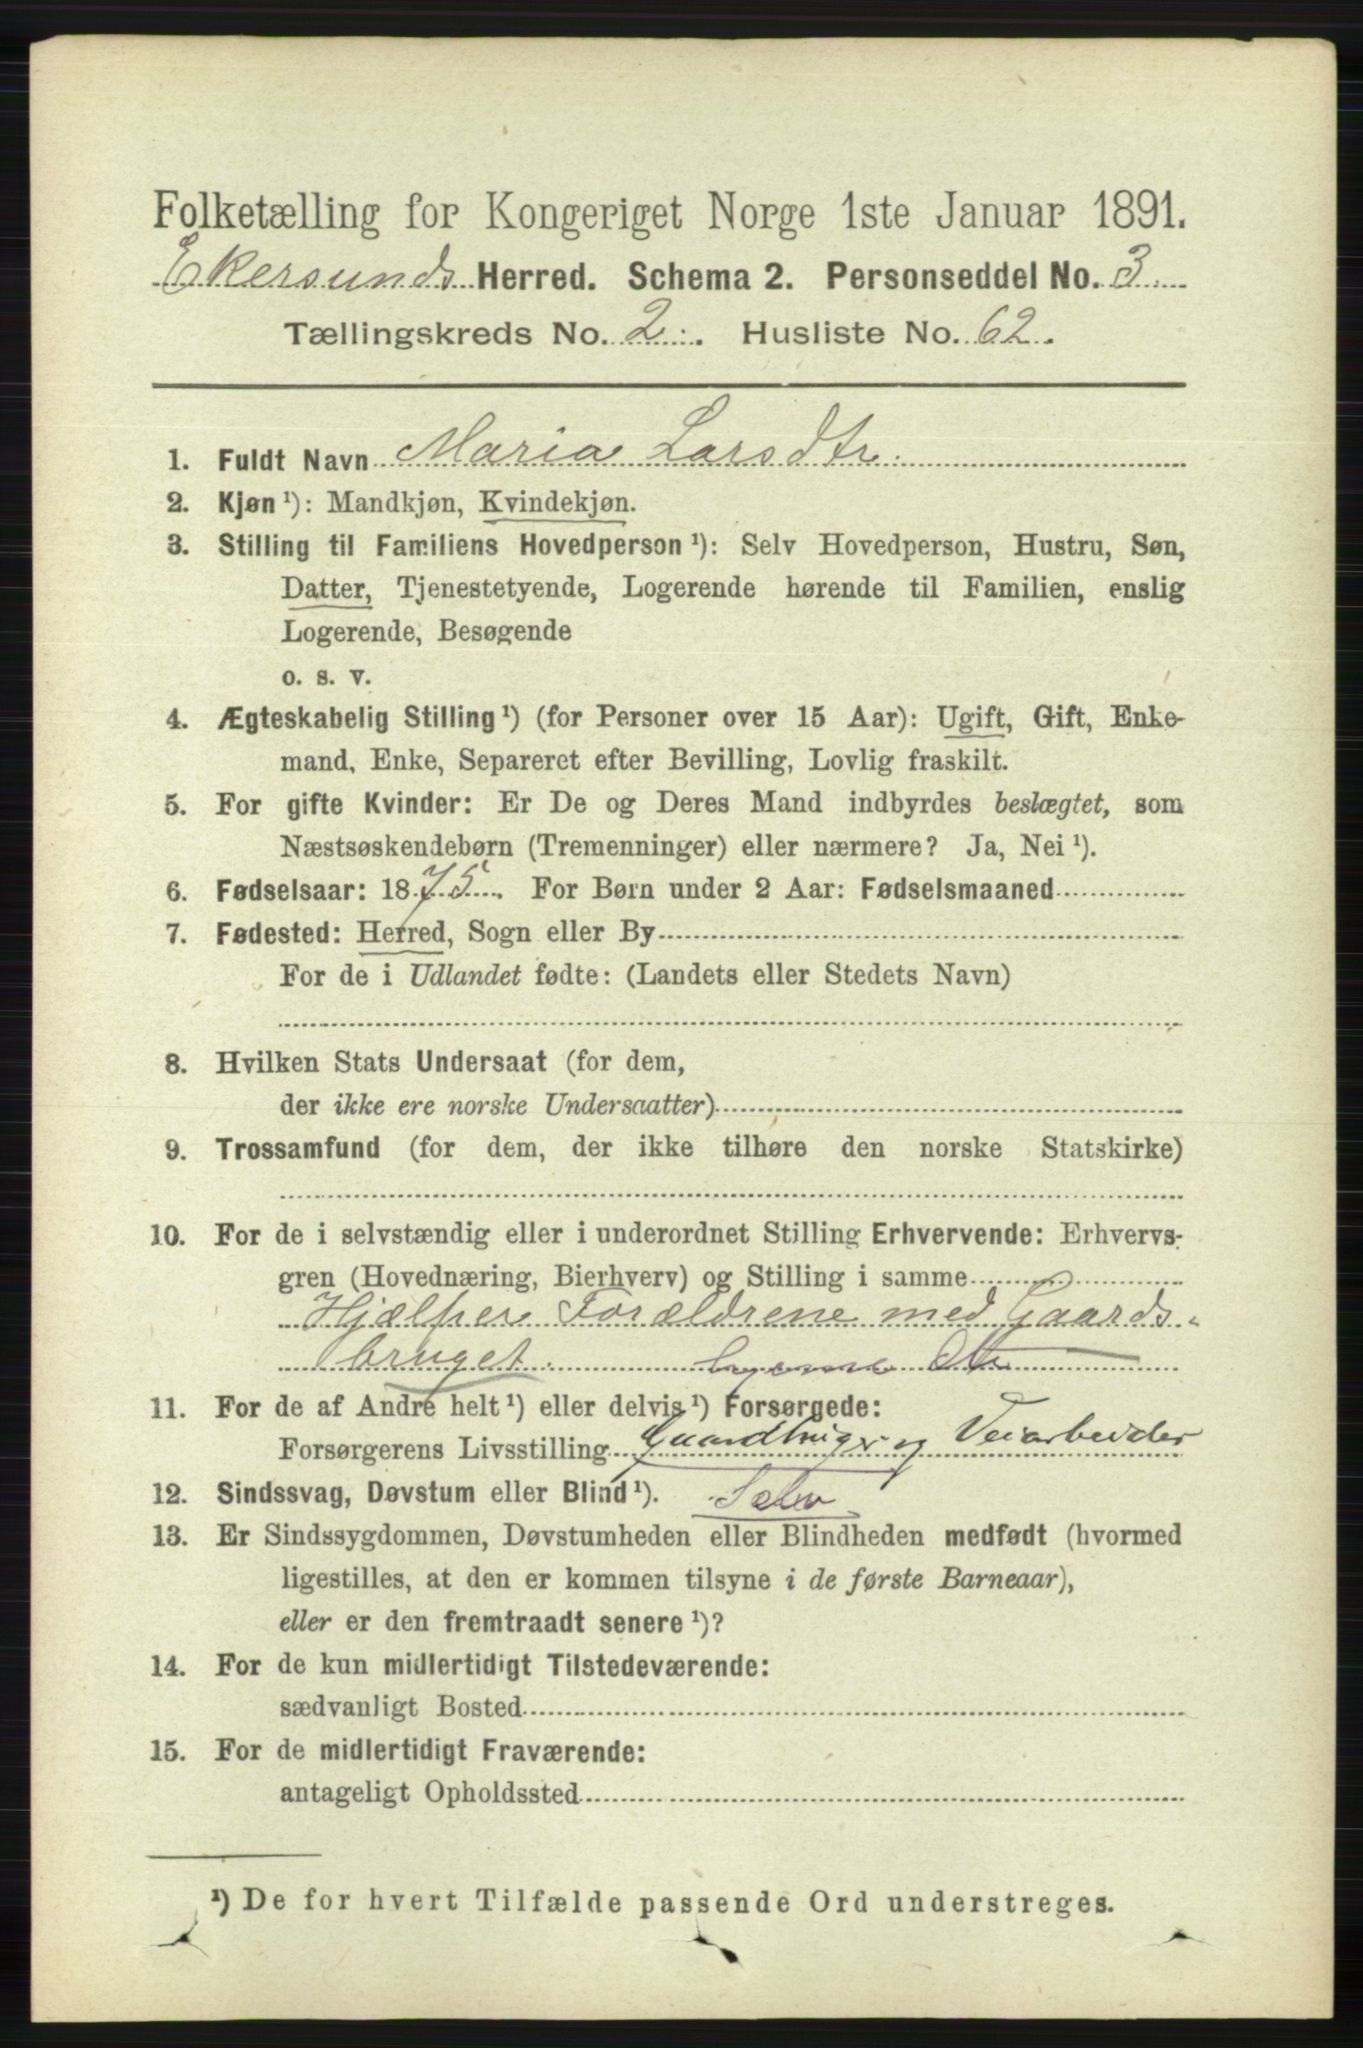 Folketælling for Kongeriget Norge 1ste Januar 1891.
Ekersunds Herred. Schema 2. Personseddel No. 3
Tællingskreds No. 2. Husliste No. 62.
1. Fuldt Navn Maria Larsdtr.
2. Kjøn ¹): Mandkjøn, Kvindekjøn.
3. Stilling til Familiens Hovedperson ¹): Selv Hovedperson, Hustru, Søn,
Datter, Tjenestetyende, Logerende hørende til Familien, enslig
Logerende, Besøgende
o. s. v.
4. Ægteskabelig Stilling ¹) (for Personer over 15 Aar): Ugift, Gift, Enke-
mand, Enke, Separeret efter Bevilling, Lovlig fraskilt.
5. For gifte Kvinder: Er De og Deres Mand indbyrdes beslægtet, som
Næstsøskendebørn (Tremenninger) eller nærmere? Ja, Nei ¹).
6. Fødselsaar: 1875. For Børn under 2 Aar: Fødselsmaaned
7. Fødested: Herred, Sogn eller By
For de i Udlandet fødte: (Landets eller Stedets Navn)
8. Hvilken Stats Undersaat (for dem,
der ikke ere norske Undersaatter)
9. Trossamfund (for dem, der ikke tilhøre den norske Statskirke)
10. For de i selvstændig eller i underordnet Stilling Erhvervende: Erhvervs-
gren (Hovednæring, Bierhverv) og Stilling i samme
Hjælper Forældrene med Gaards-
bruget.
11. For de af Andre helt ¹) eller delvis ¹) Forsørgede:
Forsørgerens Livsstilling Gaardbruger og Veiarbeider
12. Sindssvag, Døvstum eller Blind ¹). Selv
13. Er Sindssygdommen, Døvstumheden eller Blindheden medfødt (hvormed
ligestilles, at den er kommen tilsyne i de første Barneaar),
eller er den fremtraadt senere ¹)?
14. For de kun midlertidigt Tilstedeværende:
sædvanligt Bosted
15. For de midlertidigt Fraværende:
antageligt Opholdssted
¹) De for hvert Tilfælde passende Ord understreges.